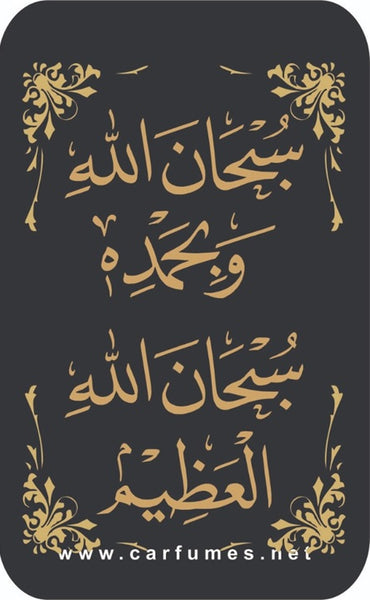 سُبْحَانَ اللهِ
وَبِحَمْدِهِ
سُبْحَانَ اللهِ
الْعَظِيْمِ
www.carfumes.net